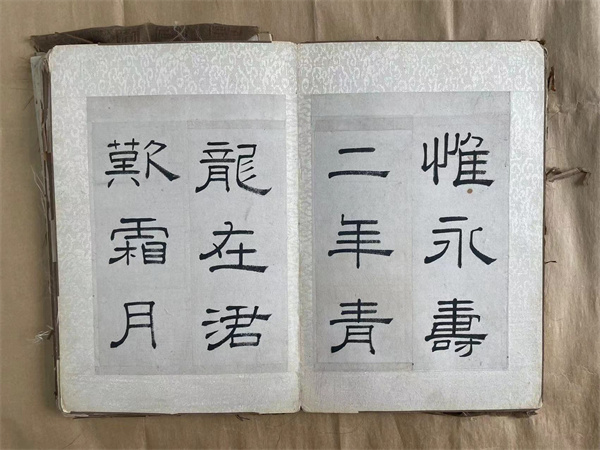 惟永壽
二年青
龍在涒
歎霜月